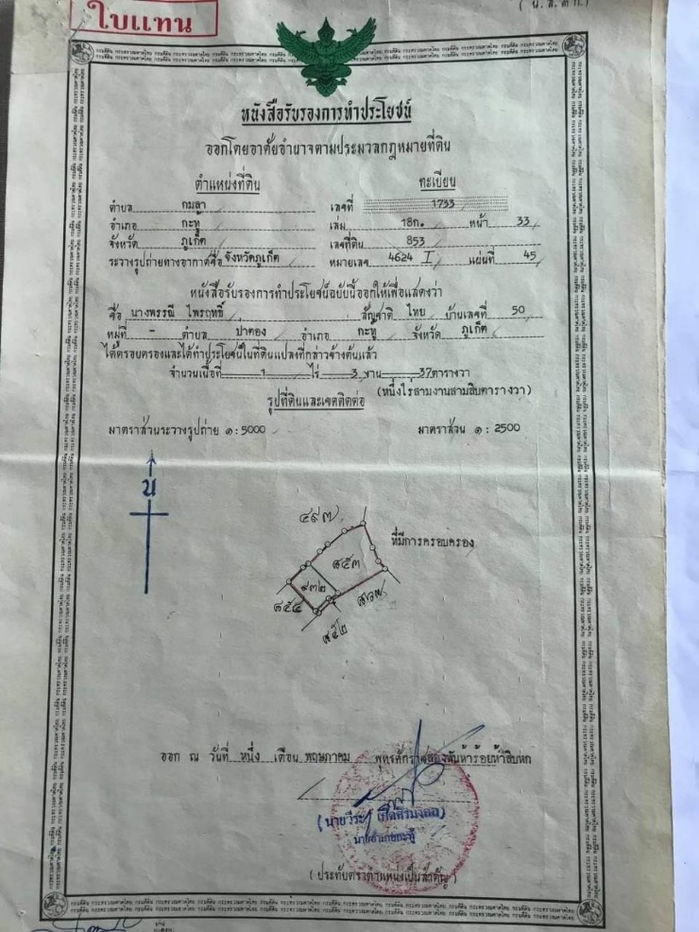 (น.ส.๓ ก.)
ใบแทน
หนังสือรับรองการทำประโยชน์
ออกโดยอาศัยอำนาจตามประมวลกฎหมายที่ดิน
ตำแหน่งที่ดิน ทะเบียน
ตำบล กมลา เลขที่ 1733
อำเภอ กะทู้ เล่ม 18ก. หน้า 33
จังหวัด ภูเก็ต เลขที่ดิน 853
ระวางรูปถ่ายทางอากาศชื่อ จังหวัดภูเก็ต หมายเลข 4624 I แผ่นที่ 45
หนังสือรับรองการทำประโยชน์ฉบับนี้ออกให้เพื่อแสดงว่า
ชื่อ นางพรรณี ไพรฤทธิ์ สัญชาติ ไทย บ้านเลขที่ 50
หมู่ที่ - ตำบล ป่าตอง อำเภอ กะทู้ จังหวัด ภูเก็ต
ได้ครอบครองและได้ทำประโยชน์ในที่ดินแปลงที่กล่าวข้างต้นแล้ว
จำนวนเนื้อที่ 1 ไร่ 3 งาน 37 ตารางวา
(หนึ่งไร่สามงานสามสิบตารางวา)
รูปที่ดินและเขตติดต่อ
มาตราส่วนระวางรูปถ่าย ๑ : 5000 มาตราส่วน ๑ : 2500
น
๔๙๗
ที่มีการครอบครอง
๘๕๓
๙๓๒
๘๕๔
๘๕๒
ออก ณ วันที่ หนึ่ง เดือน พฤษภาคม พุทธศักราชสองพันห้าร้อยห้าสิบหก
นายอำเภอกะทู้
(ประทับตราตำแหน่งเป็นสำคัญ)